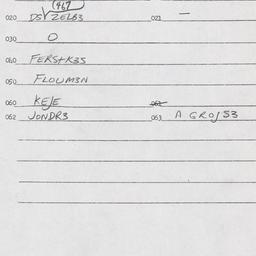 (467
020 DS√ZEL63 021 —
030 O
040 FERStK3S
050 FLOUM3N
060 KEJE 061
062 JONDR3 063 A GROJS3